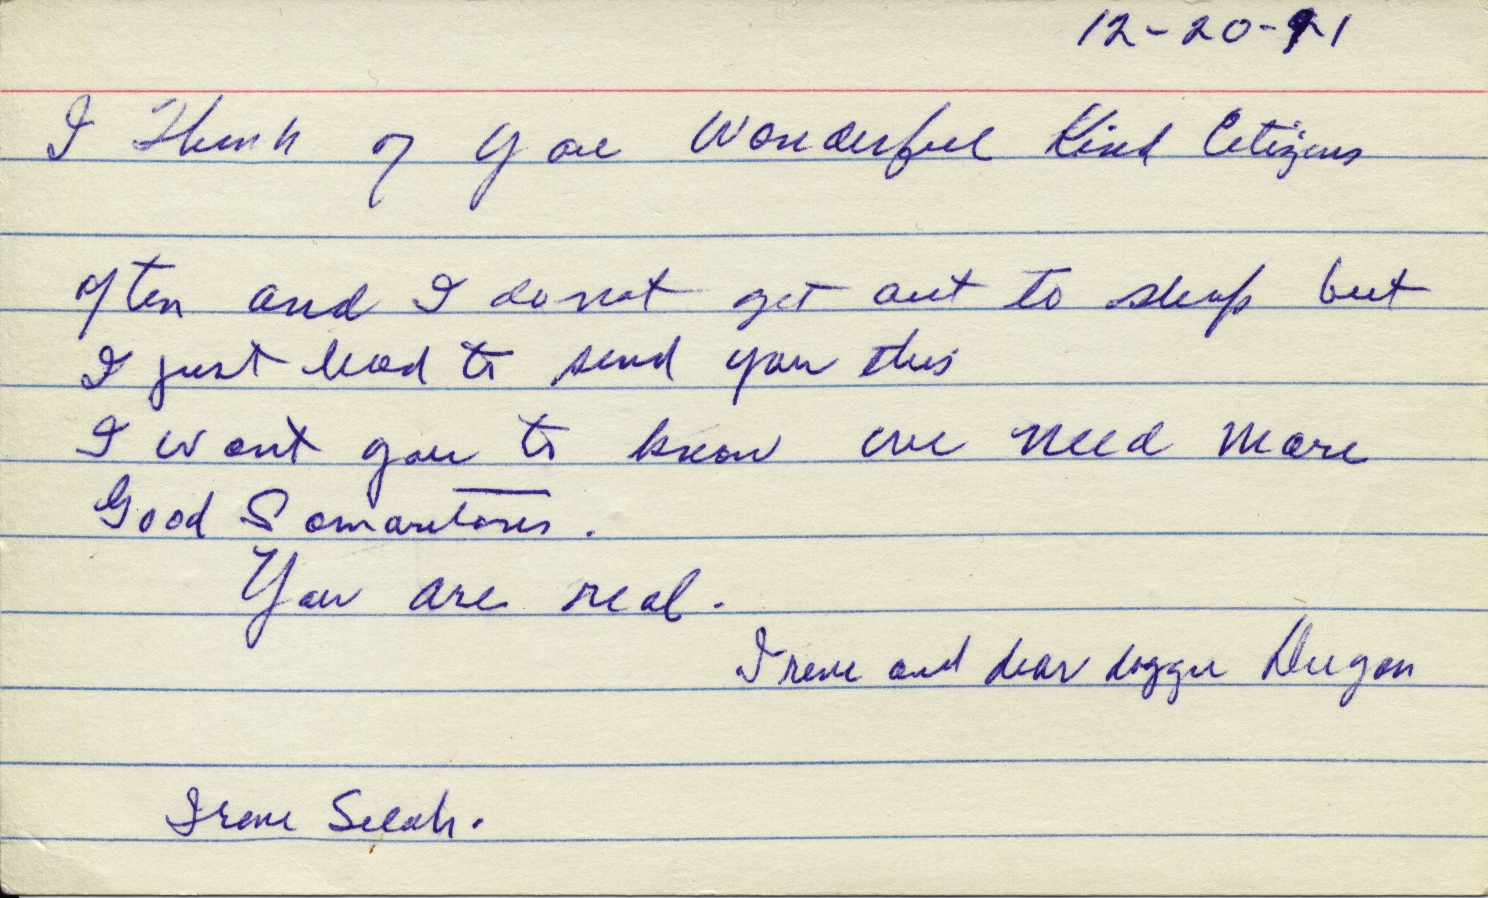 12-20-91
I Think of You Wonderful Kind Citizens
often and I do not get out to shop but
I just had to send you this
I want you to know we need more
Good Samaritans.
You are real.
Irene and dear doggie Dugan
Irene